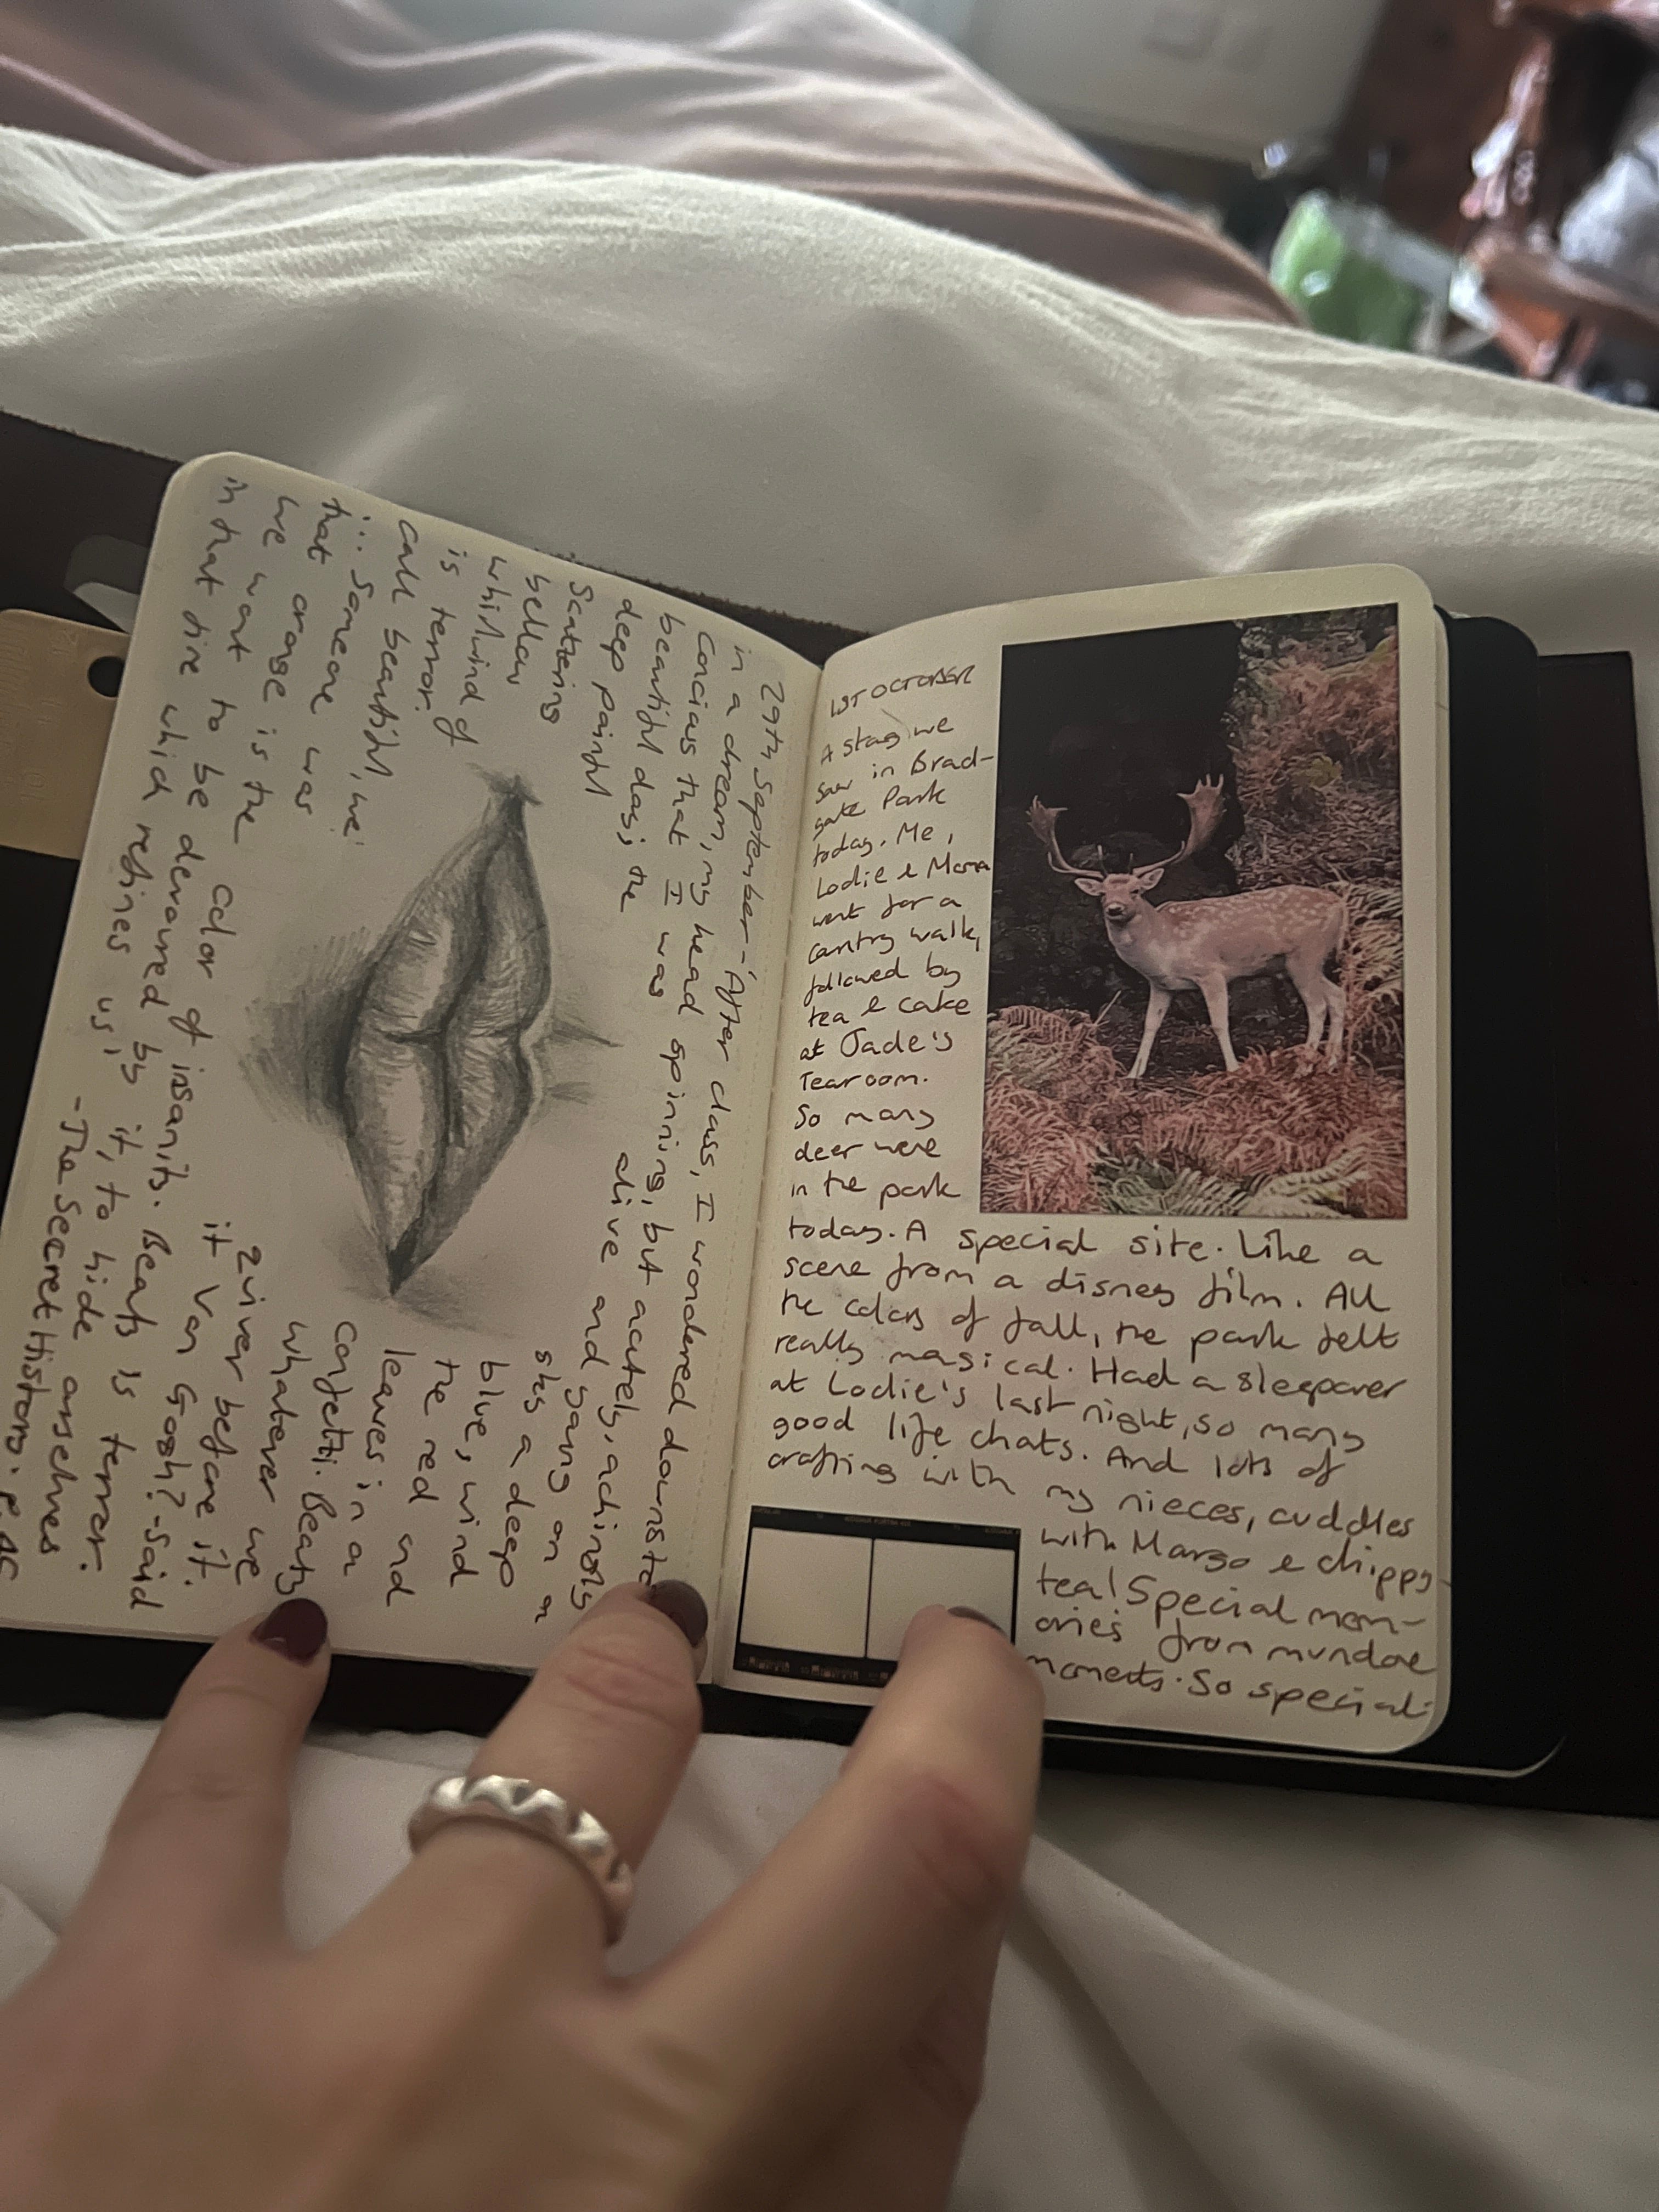 29th September - 'After class, I wondered
in a dream, my head spining, but acutely, achingly
concious that I was alive and young on a
beautiful day; the sky a deep
deep painful blue, wind
Scattering the red and
bellow leaves in a
whirlwind of confetti. Beauty
is terror. Whatever we
call beautiful, we quiver before it.
... Someone was it Van Gogh? - said
that orange is the color of insanity. Beauty is terror.
we want to be devoured by it, to hide ourselves
in that fire which refines us.' - The Secret History. P.
1ST OCTOBER
A stag we
saw in Brad-
gate Park
today. Me,
Lodie & Mama
went for a
country walk,
followed by
tea & cake
at Jade's
Tearoom.
So many
deer were
in the park
today. A special site. Like a
scene from a disney film. All
the colors of fall, the park felt
really magical. Had a sleepover
at Lodie's last night, so many
good life chats. And lots of
crafting with my nieces, cuddles
with Margo & chippy
tea! Special mem-
ories from mundae
moments. So special.